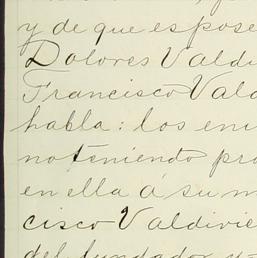 y de que es pose
Dolores Valdi
Francisco Vald
habla: los en
no teniendo pro
en ella á su m
cisco Valdivie
del fundador y